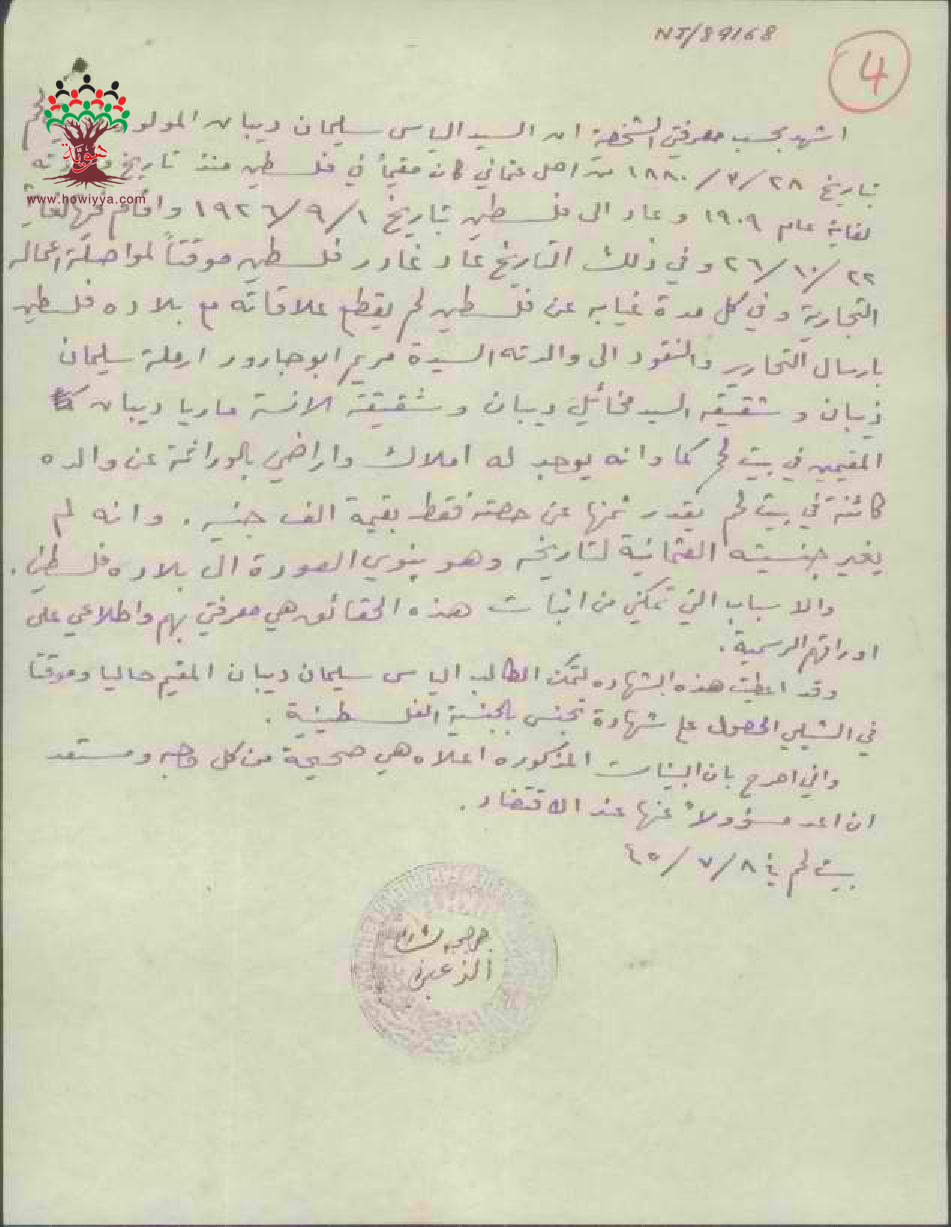 NJ/89168
4
هوية
www.howiyya.com
اشهد بحسب معرفتي الشخصية ان السيد الياس سليمان ديبان المولود لحم
بتاريخ ٢٨/٣/١٨٨٠ من اصل عثماني كان مقيماً في فلسطين منذ تاريخ ولادته
لغاية عام ١٩٠٩ وعاد الى فلسطين بتاريخ ١/٩/١٩٢٦ وأقام فيها لغاية
٢٢/١٠/٢٦ وفي ذلك التاريخ عاد غادر فلسطين موقتاً لمواصلة اعماله
التجارية وفي كل مدة غيابه عن فلسطين لم يقطع علاقاته مع بلاده فلسطين
بارسال التحارير والنقود الى والدته السيدة مريم ابو جارور ارملة سليمان
ذيبان وشقيقه السيد مخائيل ديبان وشقيقته الانسة ماريا ديبان
المقيمين في بيت لحم كما وانه يوجد له املاك واراضي بالوراثة عن والده
كائنة في بيت لحم يقدر ثمنها عن حصته فقط بقيمة الف جنيه . وانه لم
يغير جنسيته العثمانية لتاريخه وهو ينوي العودة الى بلاده فلسطين .
والاسباب التي تمكني من اثبات هذه الحقائق هي معرفتي بهم واطلاعي على
اوراقهم الرسمية .
وقد اعطيت هذه الشهاده لتمكن الطالب الياس سليمان ديبان المقيم حاليا وموقتا
في التشيلي الحصول على شهادة تجنس بالجنسية الفلسطينية .
واني اصرح بان البينات المذكوره اعلاه هي صحيحة من كل وجه ومستعد
ان اعد مسؤولاً عنها عند الاقتضاء .
بيت لحم في ٨/٧/٤٥